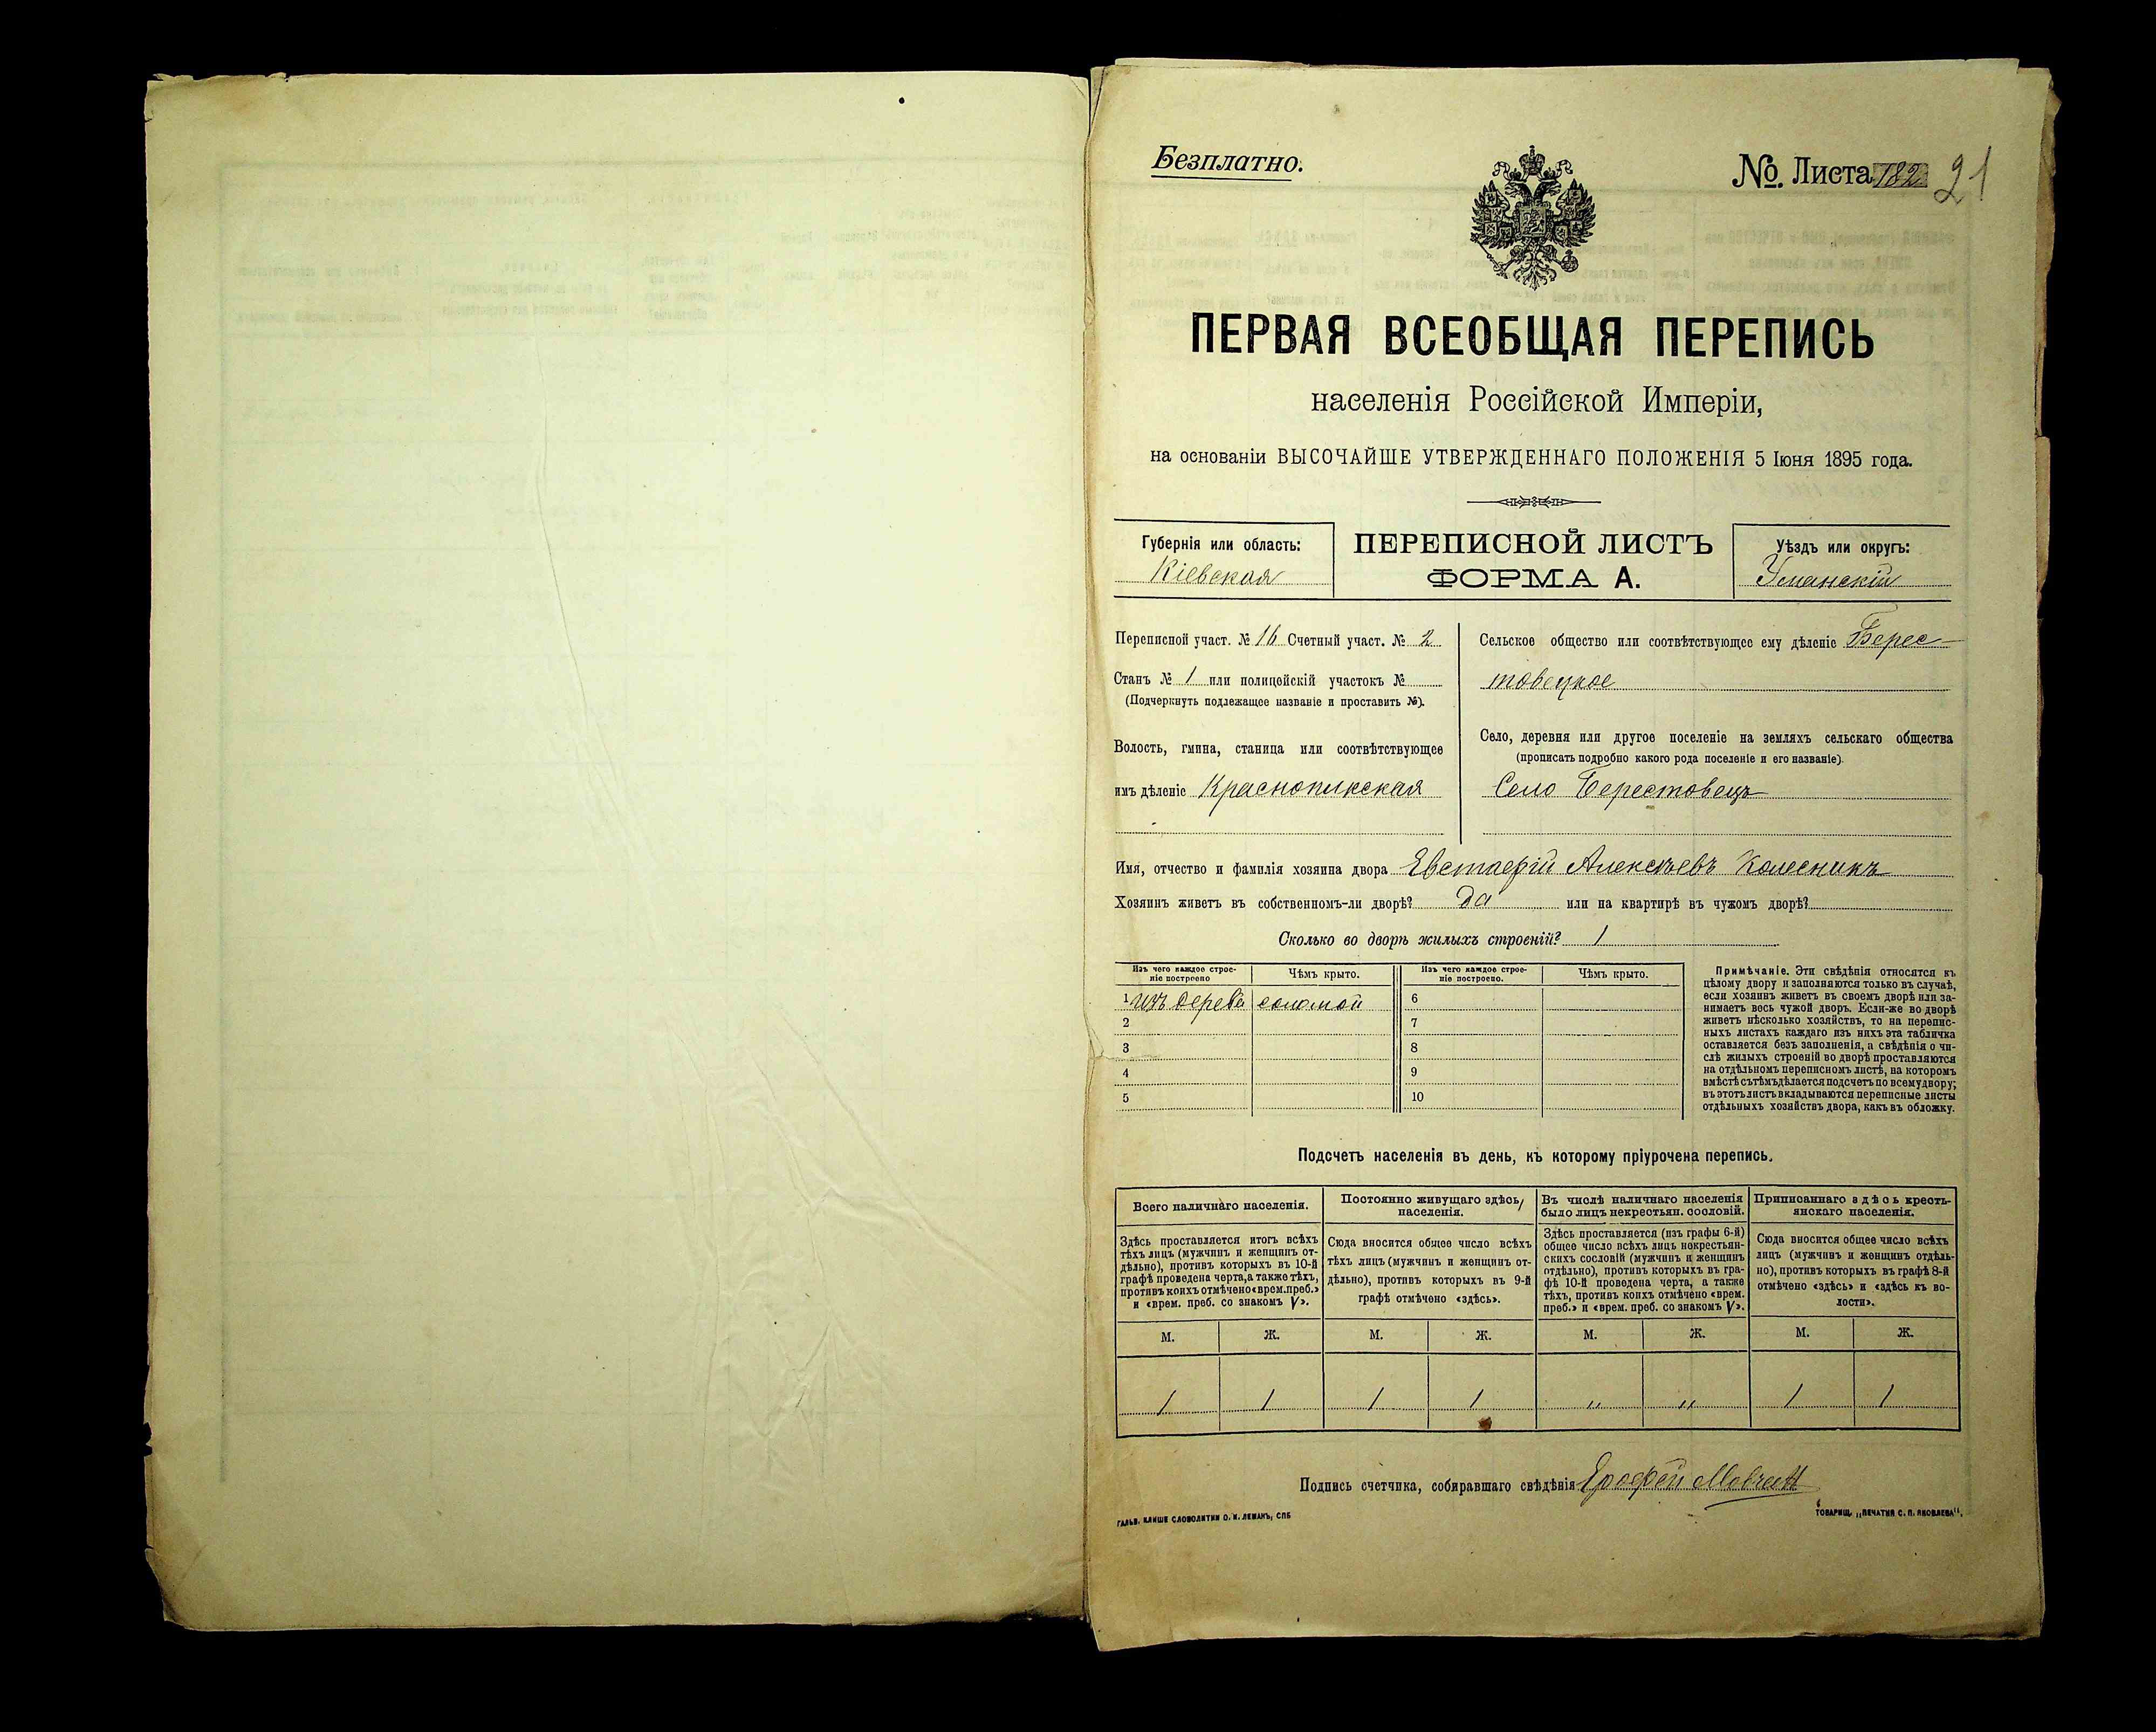 Безплатно.
№. Листа 182 21
ПЕРВАЯ ВСЕОБЩАЯ ПЕРЕПИСЬ
населенія Россійской Имперіи,
на основаніи ВЫСОЧАЙШЕ УТВЕРЖДЕННАГО ПОЛОЖЕНІЯ 5 Іюня 1895 года.
Губернія или область:
Кіевская
ПЕРЕПИСНОЙ ЛИСТЪ
ФОРМА А.
Уѣздъ или округъ:
Уманскій
Переписной участ. № 16 Счетный участ. № 2
Станъ № 1 или полицейскій участокъ №
(Подчеркнуть подлежащее названіе и проставить №).
Волость, гмина, станица или соотвѣтствующее
имъ дѣленіе Краснопилская
Сельское общество или соотвѣтствующее ему дѣленіе Берес-
товецкое
Село, деревня или другое поселеніе на земляхъ сельскаго общества
(прописать подробно какого рода поселеніе и его названіе).
Село Берестовецъ
Имя, отчество и фамилія хозяина двора Евстафій Алексѣевъ Колесникъ
Хозяинъ живетъ въ собственномъ-ли дворѣ? Да или на квартирѣ въ чужомъ дворѣ?
Сколько во дворѣ жилыхъ строеній? 1
Изъ чего каждое строе-
ніе построено
Чѣмъ крыто.
Изъ чего каждое строе-
ніе построено.
Чѣмъ крыто.
1 изъ дерева соломой 6
2 7
3 8
4 9
5 10
Примѣчаніе. Эти свѣдѣнія относятся къ
цѣлому двору и заполняются только въ случаѣ,
если хозяинъ живетъ въ своемъ дворѣ или за-
нимаетъ весь чужой дворъ. Если-же во дворѣ
живетъ нѣсколько хозяйствъ, то на перепис-
ныхъ листахъ каждаго изъ нихъ эта табличка
оставляется безъ заполненія, а свѣдѣнія о чи-
слѣ жилыхъ строеній во дворѣ проставляются
на отдѣльномъ переписномъ листѣ, на которомъ
вмѣстѣ съ тѣмъ дѣлается подсчетъ по всему двору;
въ этотъ листъ вкладываются переписные листы
отдѣльныхъ хозяйствъ двора, какъ въ обложку.
Подсчетъ населенія въ день, къ которому пріурочена перепись.
Всего наличнаго населенія.
Здѣсь проставляется итогъ всѣхъ
тѣхъ лицъ (мужчинъ и женщинъ от-
дѣльно), противъ которыхъ въ 10-й
графѣ проведена черта, а также тѣхъ,
противъ коихъ отмѣчено «врем. преб.»
и «врем. преб. со знакомъ V».
Постоянно живущаго здѣсь
населенія.
Сюда вносится общее число всѣхъ
тѣхъ лицъ (мужчинъ и женщинъ от-
дѣльно), противъ которыхъ въ 9-й
графѣ отмѣчено «здѣсь».
Въ числѣ наличнаго населенія
было лицъ некрестьян. сословій.
Здѣсь проставляется (изъ графы 6-й)
общее число всѣхъ лицъ некрестьян-
скихъ сословій (мужчинъ и женщинъ
отдѣльно), противъ которыхъ въ гра-
фѣ 10-й проведена черта, а также
тѣхъ, противъ коихъ отмѣчено «врем.
преб.» и «врем. преб. со знакомъ V».
Приписаннаго здѣсь кресть-
янскаго населенія.
Сюда вносится общее число всѣхъ
лицъ (мужчинъ и женщинъ отдѣль-
но), противъ которыхъ въ графѣ 8-й
отмѣчено «здѣсь» и «здѣсь къ во-
лости».
М. Ж. М. Ж. М. Ж. М. Ж.
1 1 1 1 " " 1 1
Подпись счетчика, собиравшаго свѣдѣнія Ерофей Мовчан
ГАЛЬВ. КЛИШЕ СЛОВОЛИТНИ О. И. ЛЕМАНЪ, СПБ
ТОВАРИЩ. „ПЕЧАТНЯ С. П. ЯКОВЛЕВА".